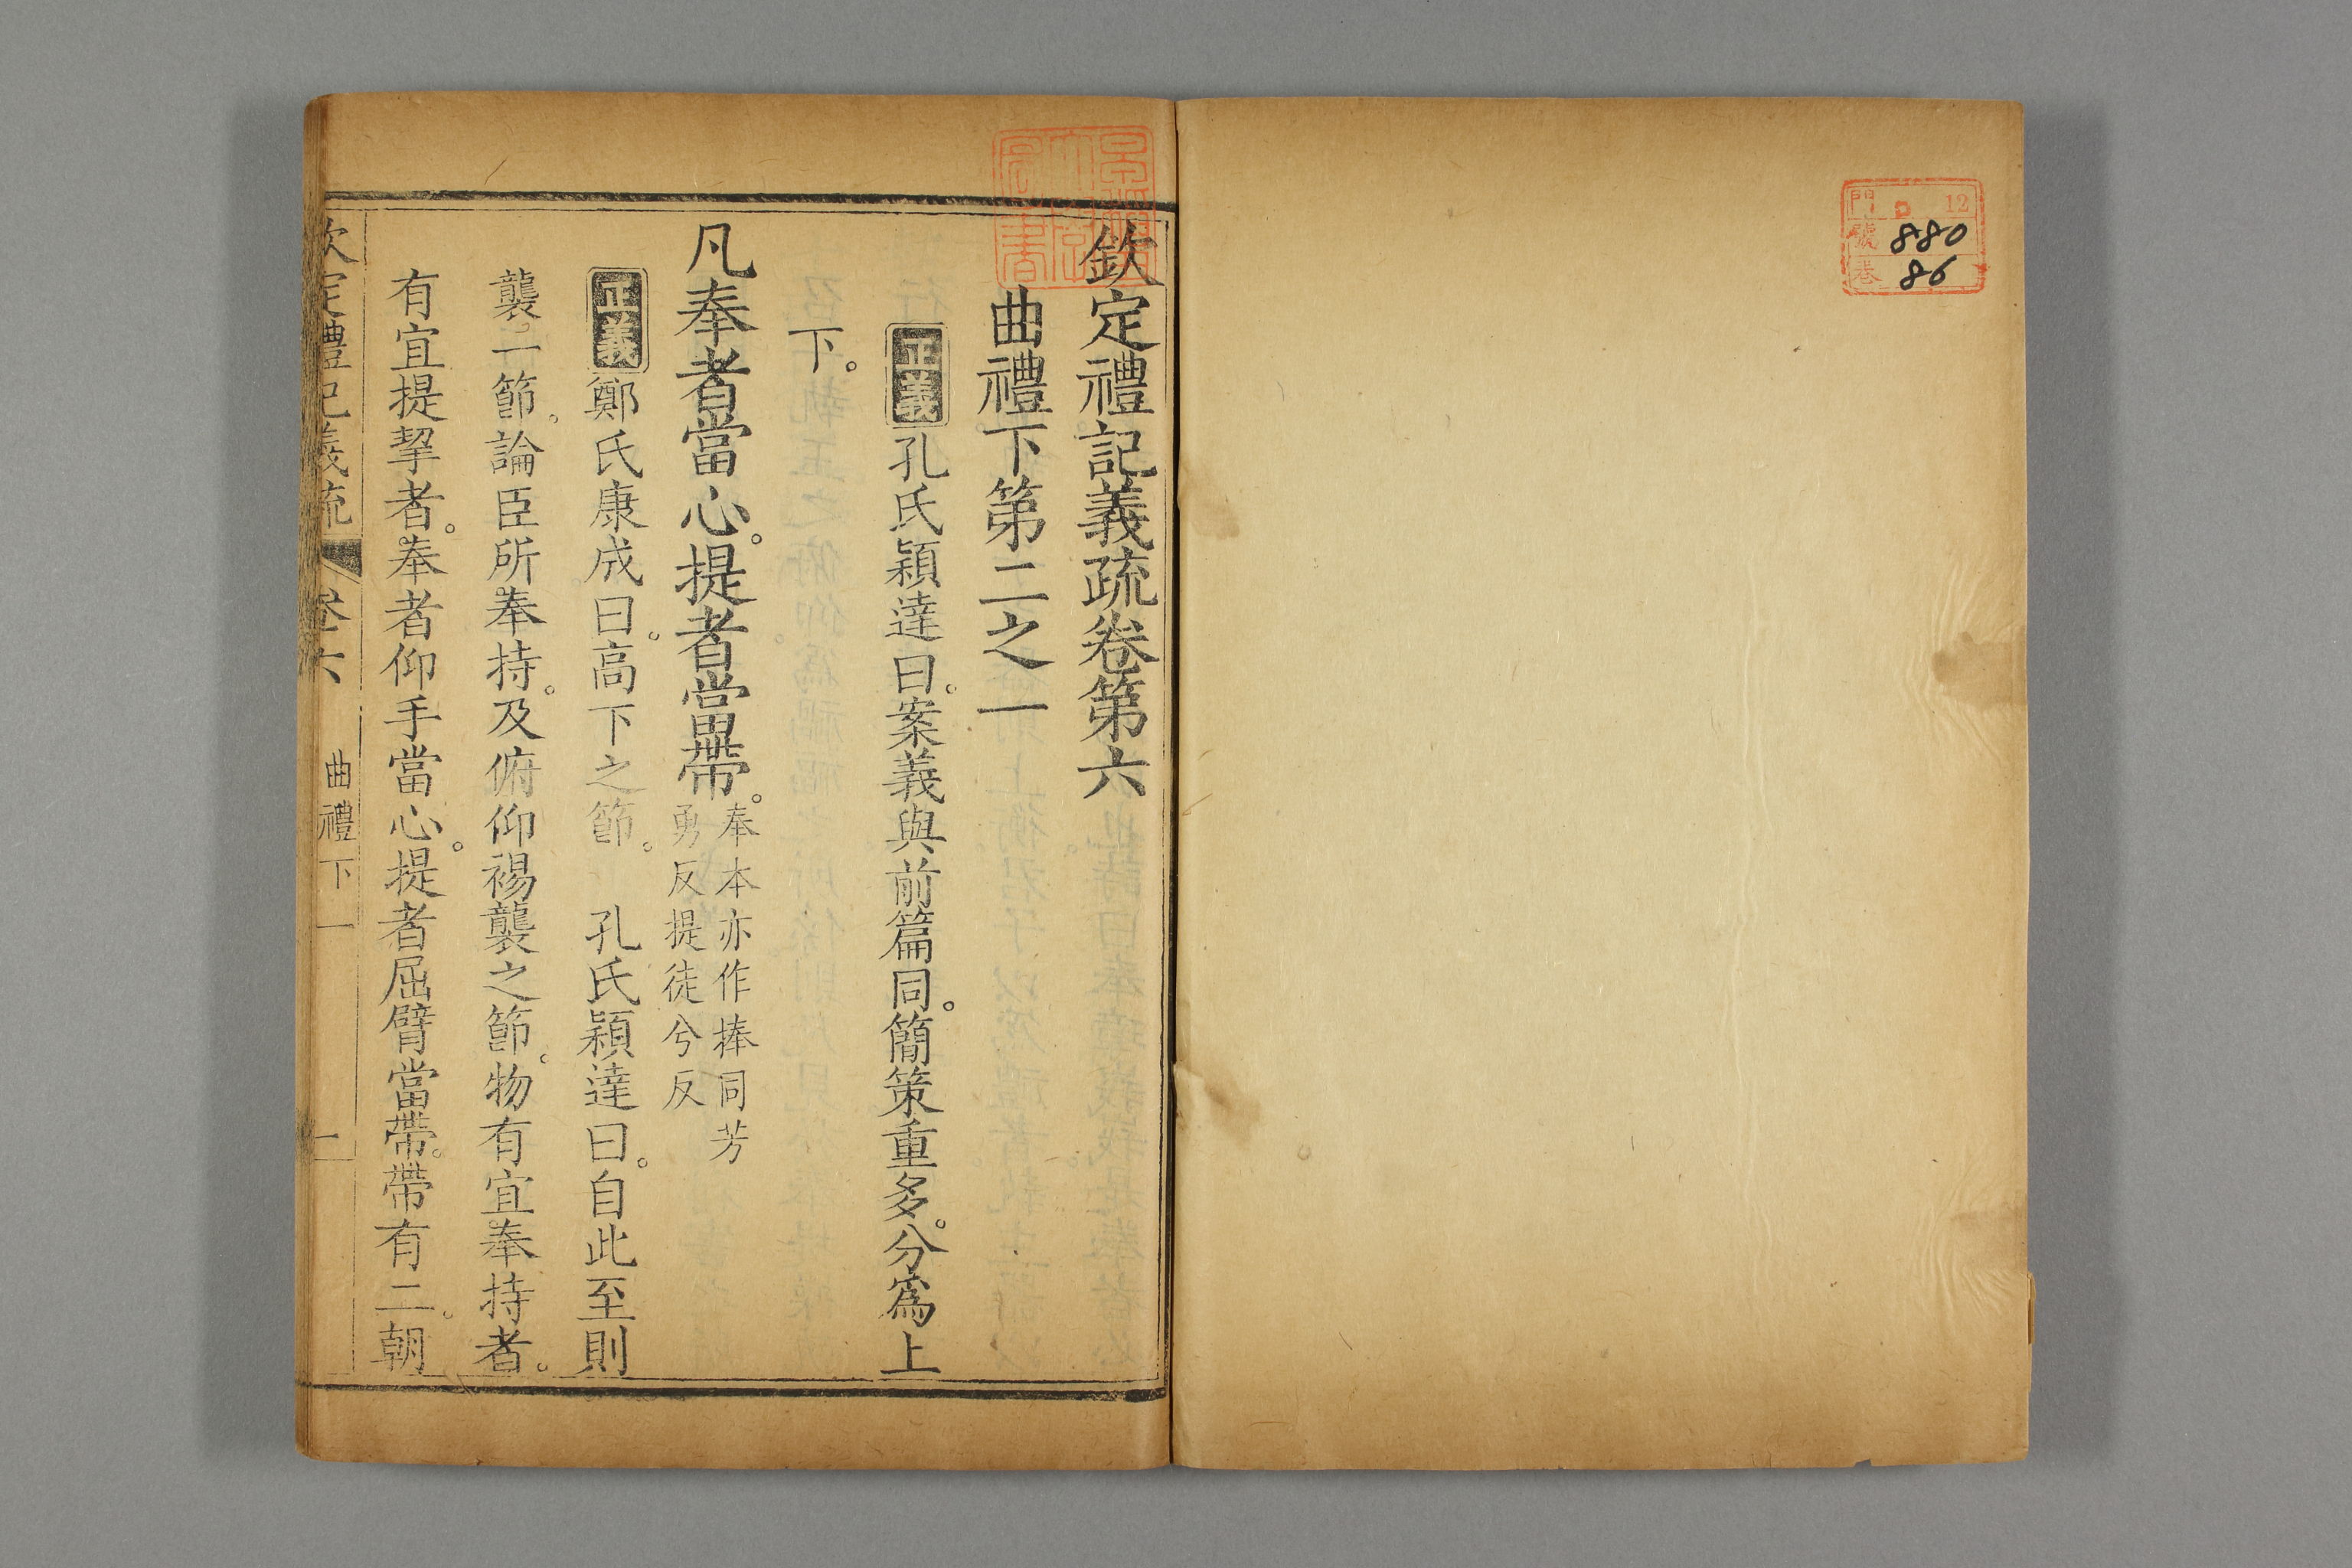 門 12
號 880
卷 86
欽定禮記義疏卷第六
曲禮下第二之一
正義孔氏穎達曰。案義與前篇同。簡策重多。分爲上
下。
凡奉者當心。提者當帶。奉本亦作捧同芳
勇反提徒兮反
正義鄭氏康成曰。高下之節。 孔氏穎達曰。自此至則
襲一節。論臣所奉持。及俯仰裼襲之節。物有宜奉持者。
有宜提挈者。奉者仰手當心。提者屈臂當帶。帶有二。朝
欽定禮記義疏 卷六 曲禮下 一